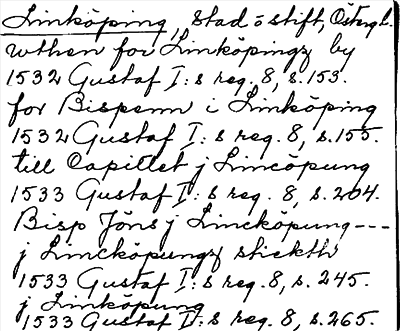 Linköping, stad o stift, Östergl.
wthen for Linköpingz by
1532 Gustaf I:s reg. 8, s. 153.
for Bispenn i Linköping
1532 Gustaf I:s reg. 8, s. 155.
till Capitlet j Lincöpung
1533 Gustaf I:s reg. 8, s. 204.
Bisp Jöns j Lincköpung---
j Lincköpungz stickth
1533 Gustaf I:s reg. 8, s. 245.
j Linköpung
1533 Gustaf I:s reg. 8, s. 265.